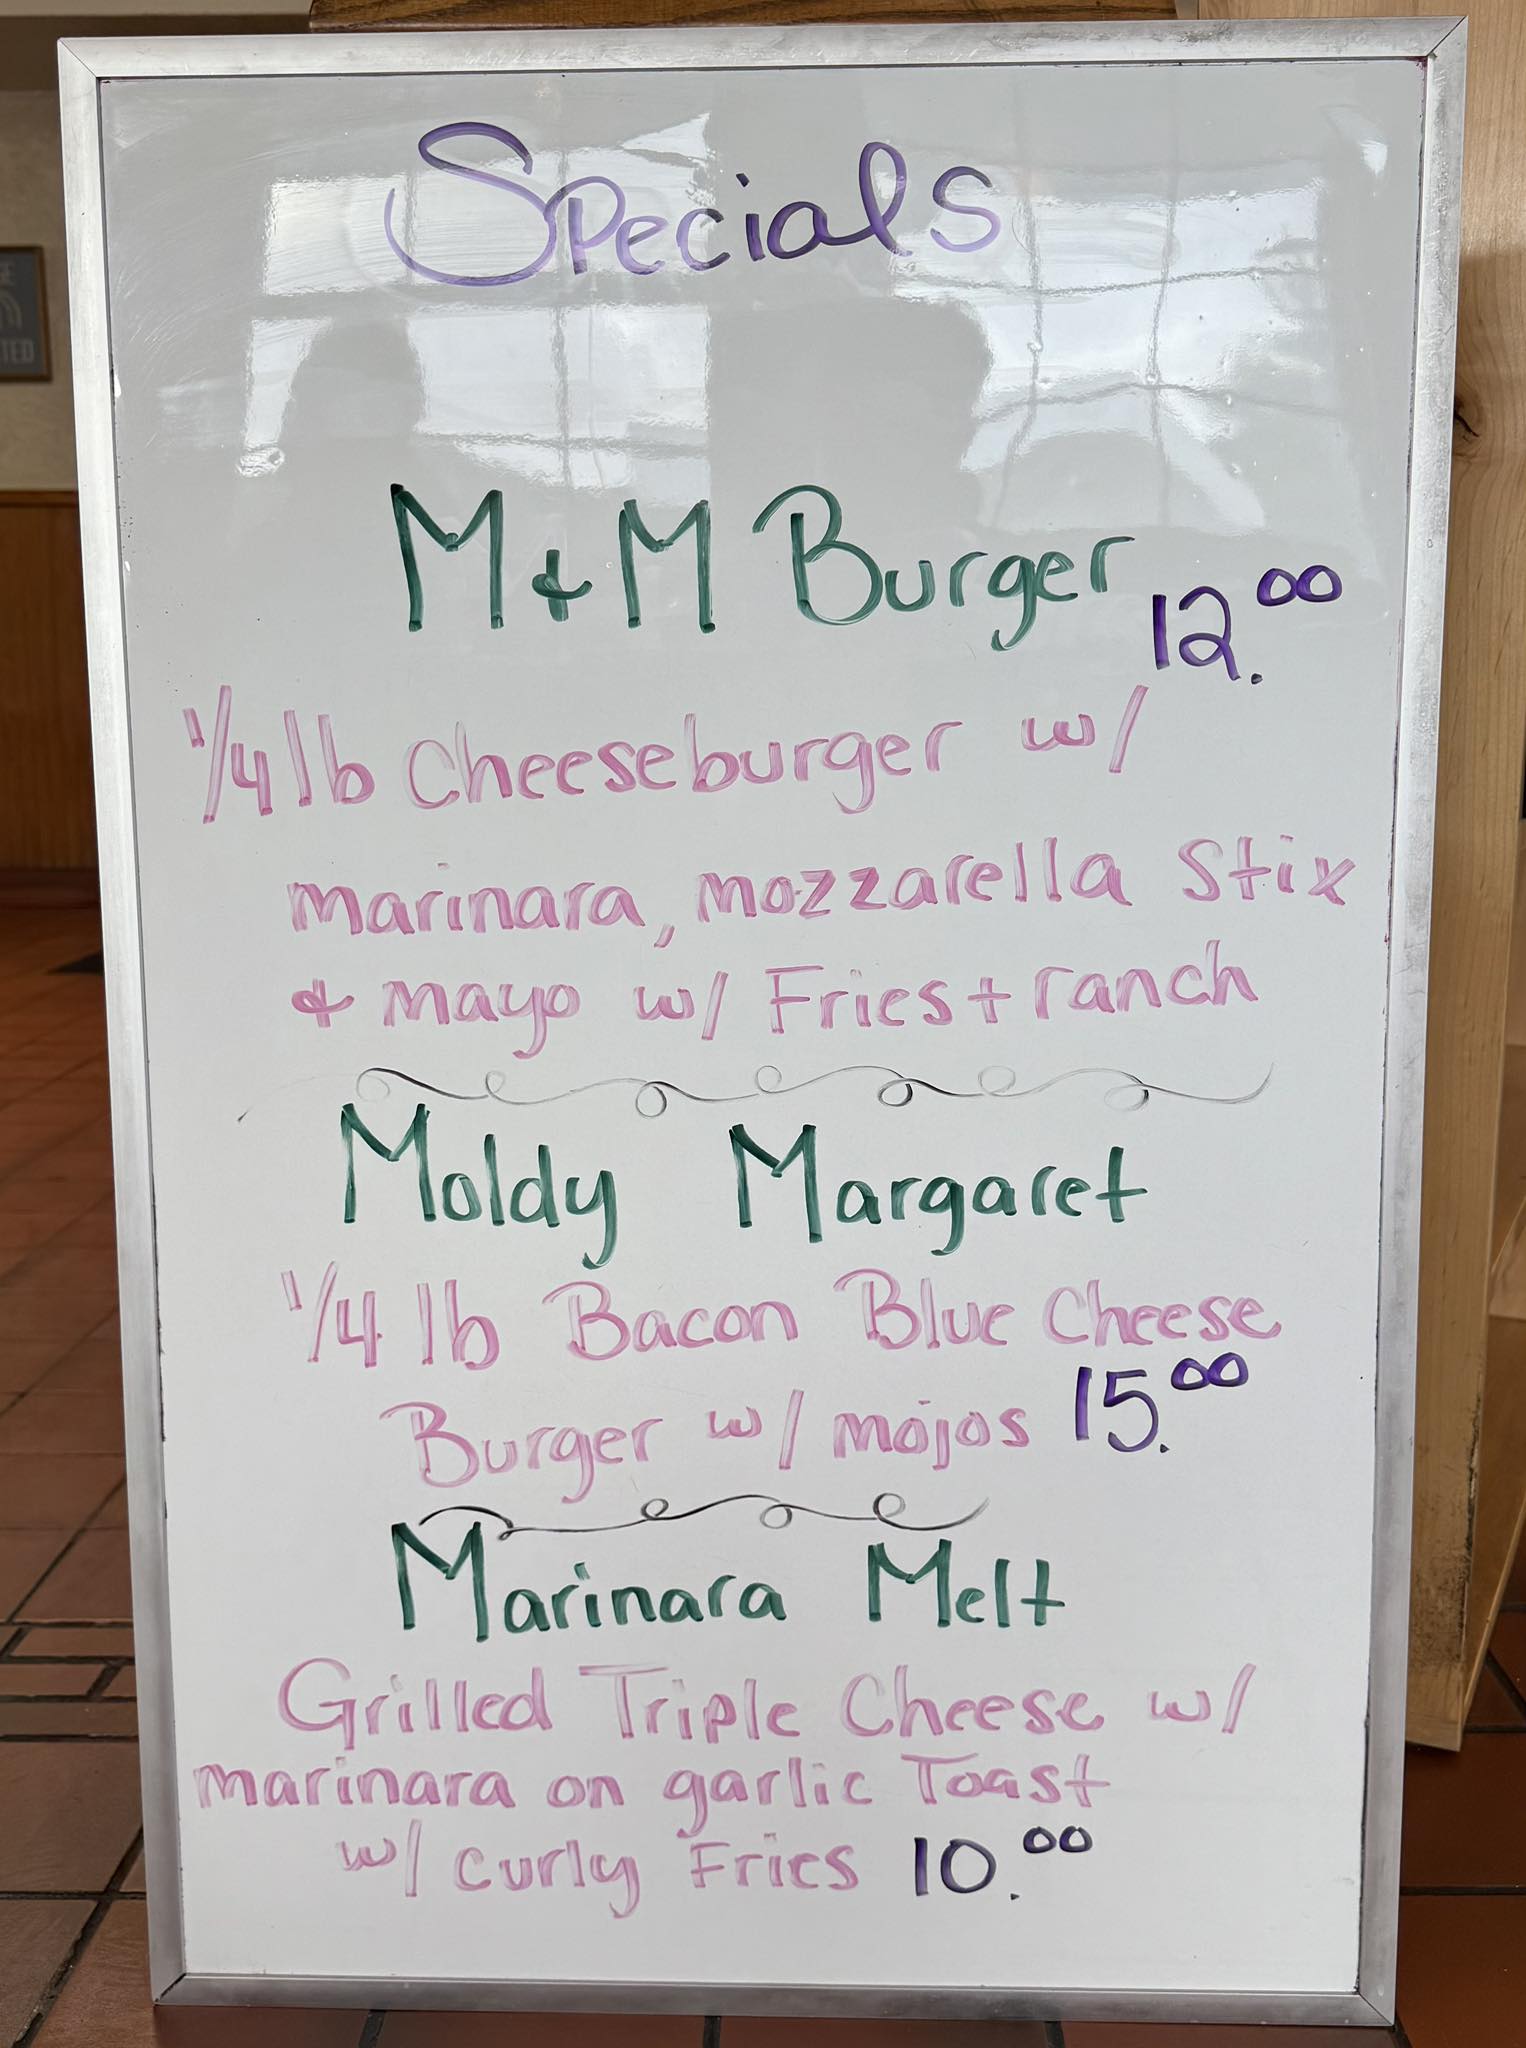 Specials
M & M Burger 12.00
1/4 lb Cheeseburger w/
marinara, mozzarella Stix
& mayo w/ Fries + ranch
Moldy Margaret
1/4 lb Bacon Blue Cheese
Burger w/ mojos 15.00
Marinara Melt
Grilled Triple Cheese w/
marinara on garlic Toast
w/ curly Fries 10.00